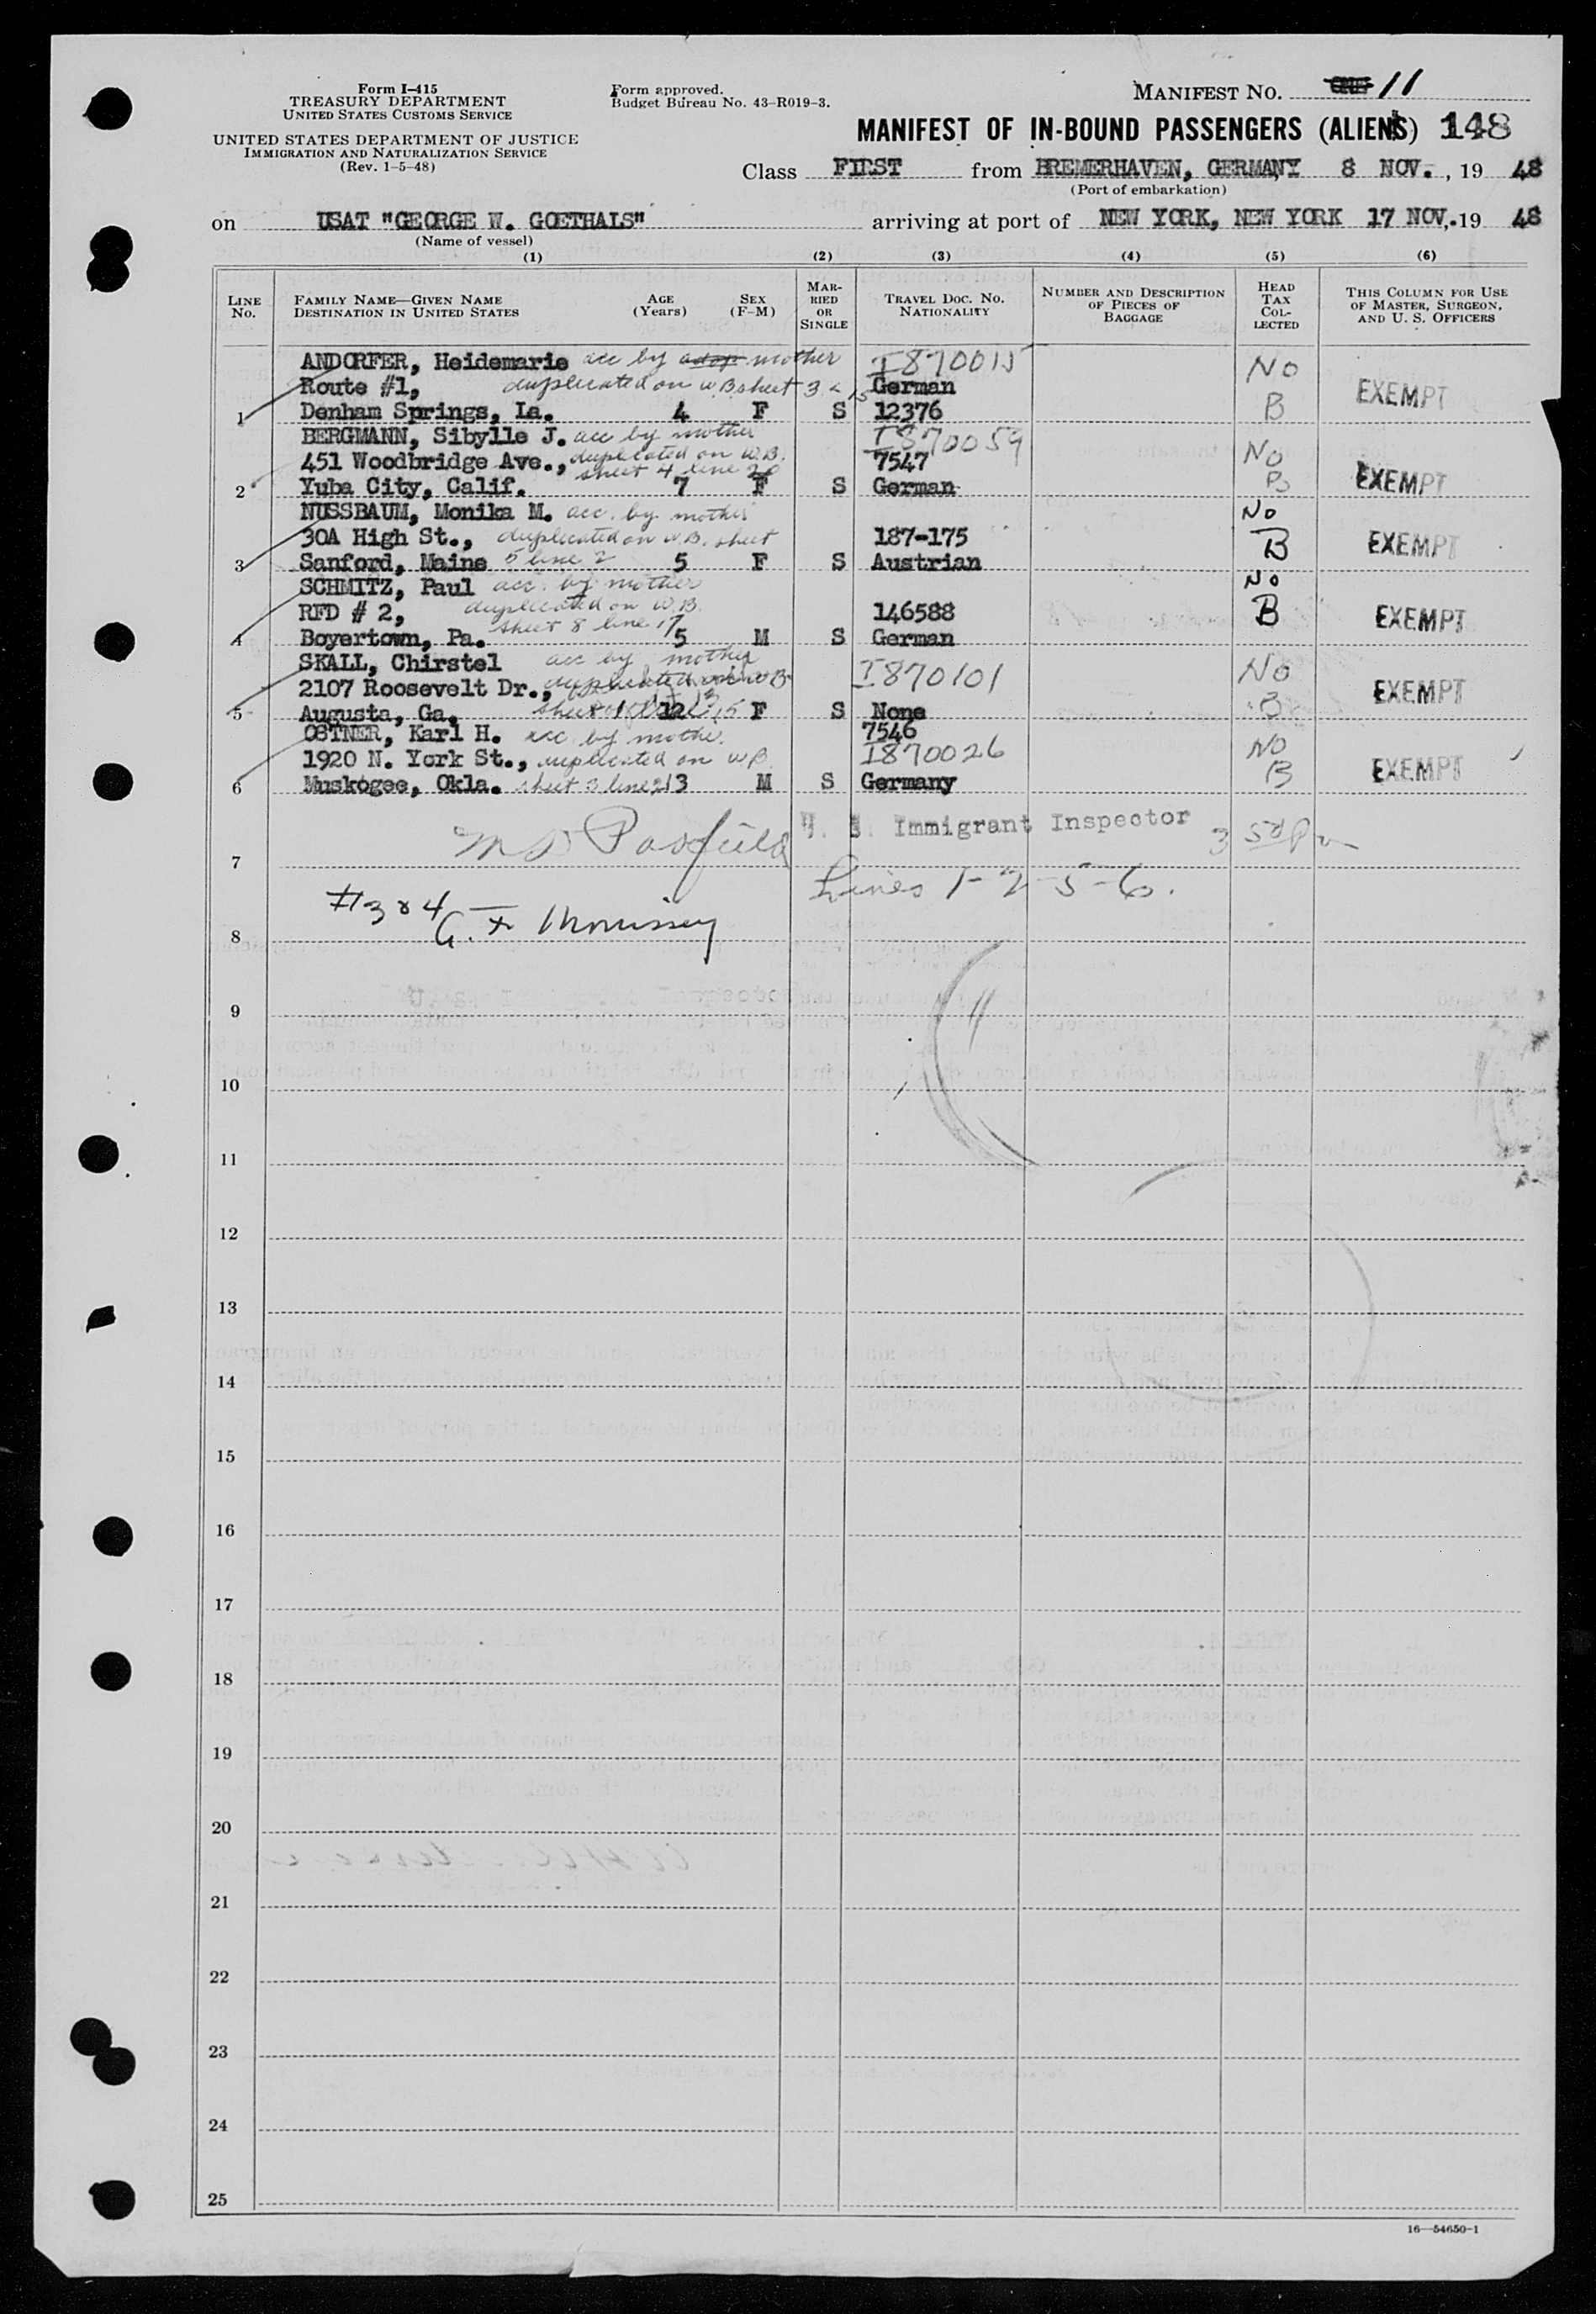 Form I-415
TREASURY DEPARTMENT
UNITED STATES CUSTOMS SERVICE
UNITED STATES DEPARTMENT OF JUSTICE
IMMIGRATION AND NATURALIZATION SERVICE
(Rev. 1-5-48)
Form approved.
Budget Bureau No. 43-R019-3.
MANIFEST NO. 11
MANIFEST OF IN-BOUND PASSENGERS (ALIENS) 148
Class FIRST from BREMERHAVEN, GERMANY 8 NOV. , 19 48
(Port of embarkation)
on USAT "GEORGE W. GOETHALS" arriving at port of NEW YORK, NEW YORK 17 NOV,.19 48
(Name of vessel)
(1) (2) (3) (4) (5) (6)
LINE NO. FAMILY NAME—GIVEN NAME DESTINATION IN UNITED STATES AGE (Years) SEX (F-M) MARRIED OR SINGLE TRAVEL DOC. NO. NATIONALITY NUMBER AND DESCRIPTION OF PIECES OF BAGGAGE HEAD TAX COLLECTED THIS COLUMN FOR USE OF MASTER, SURGEON, AND U. S. OFFICERS
ANDORFER, Heidemarie acc by adop mother I870015 No
Route #1, duplicated on W.B sheet 3 L 15 German EXEMPT
1 Denham Springs, La. 4 F S 12376 B
BERGMANN, Sibylle J. acc by mother I870059
451 Woodbridge Ave., duplicated on W.B. 7547 No
sheet 4 line 20
2 Yuba City, Calif. 7 F S German B EXEMPT
NUSSBAUM, Monika M. acc. by mother No
30A High St., duplicated on W.B. sheet 187-175 EXEMPT
3 Sanford, Maine 5 line 2 5 F S Austrian B
SCHMITZ, Paul acc. by mother No
RFD # 2, duplicated on W.B. 146588 B EXEMPT
sheet 8 line 17
4 Boyertown, Pa. 5 M S German
SKALL, Chirstel acc by mother I870101 No
2107 Roosevelt Dr., duplicated on W.B. EXEMPT
5 Augusta, Ga. sheet 12 F S None B
OSTNER, Karl H. acc by mother 7546
1920 N. York St., duplicated on W.B. I870026 No
6 Muskogee, Okla. sheet 3 line 21 3 M S Germany B EXEMPT
U. S. Immigrant Inspector
7
Lines 1-2-5-6.
#3 & 4
G. F. Morrissey
8
9 11
10
11
12
13
14
15
16
17
18
19
20
21
22
23
24
25
16—54650-1